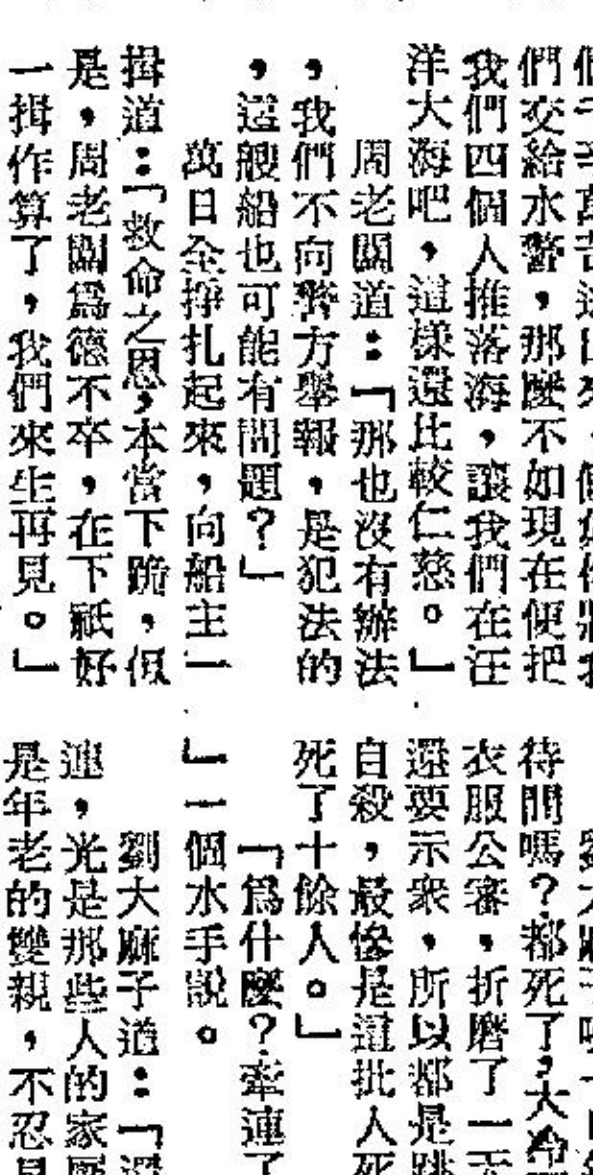 們交給水警，那麼不如現在便把
我們四個人推落海，讓我們在汪
洋大海吧，這樣還比較仁慈。」
周老闆道：「那也沒有辦法
，我們不向警方舉報，是犯法的
，這艘船也可能有問題？」
萬日全掙扎起來，向船主一
揖道：「救命之恩，本當下跪，但
是，周老闆爲德不卒，在下祇好
一揖作算了，我們來生再見。」
待間嗎？都死了，大冷
衣服公審，折磨了一天
還要示衆，所以都是跳
自殺，最慘是這批人死
死了十餘人。」
「爲什麼？牽連了
」一個水手說。
劉大麻子道：「還
連，光是那些人的家屬
是年老的雙親，不忍見